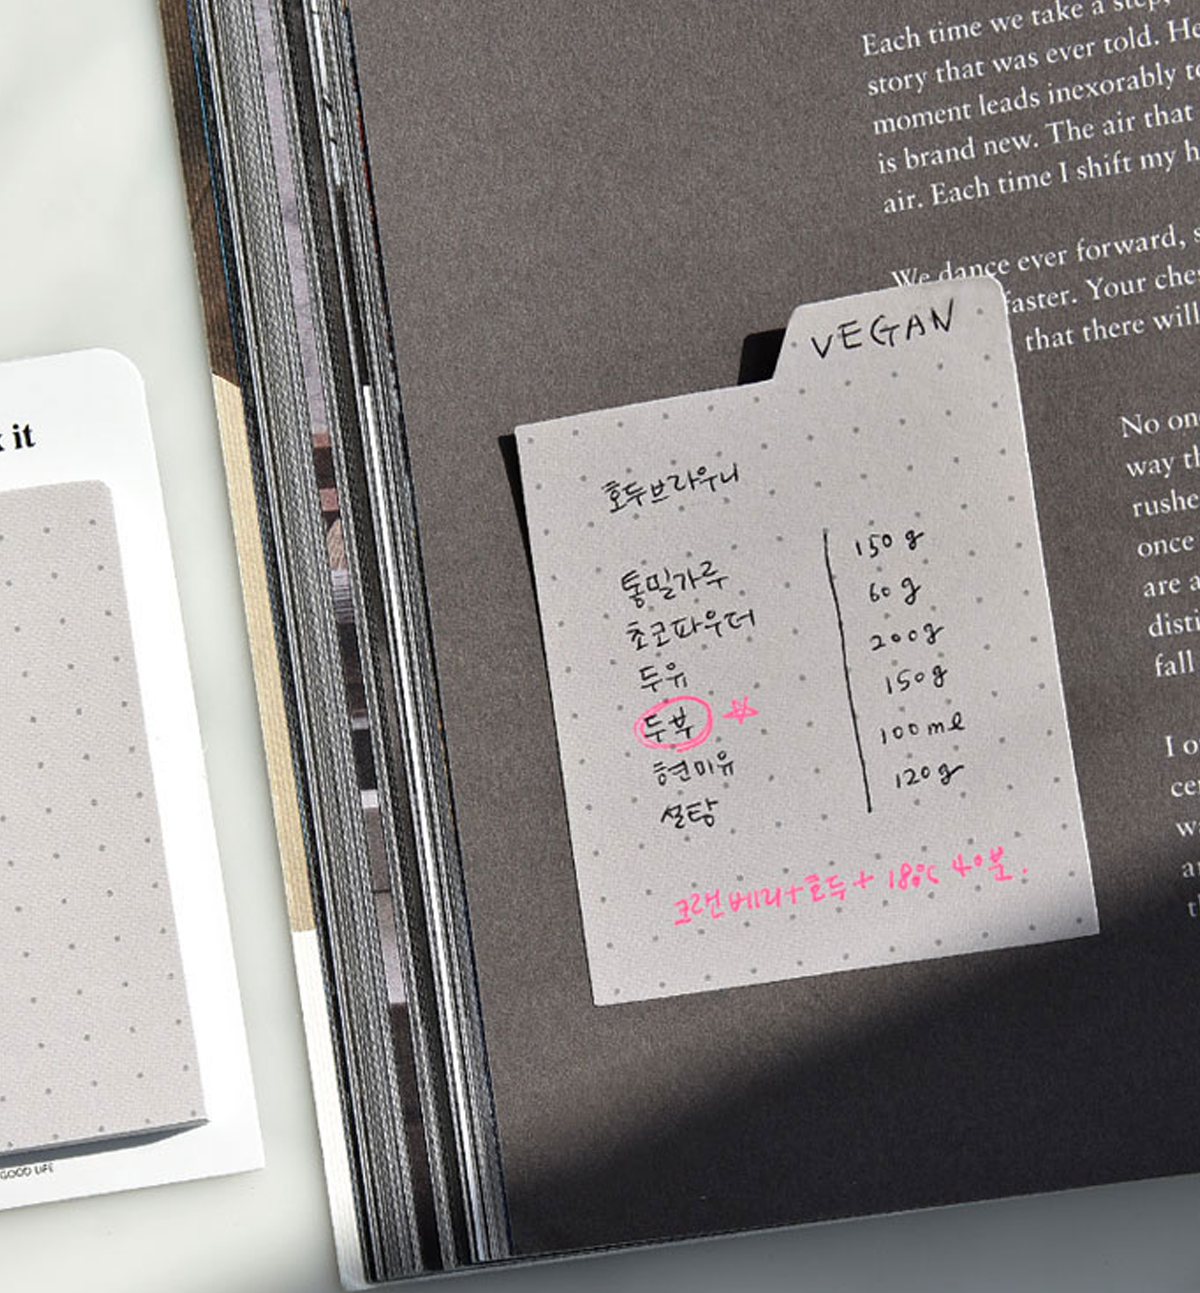 Each time we take a step,
story that was ever told. He
moment leads inexorably to
is brand new. The air that
air. Each time I shift my h
We dance ever forward, s
faster. Your ches
that there will
No on
way th
rushe
once
are a
disti
fall
I o
cer
w
a
t
VEGAN
호두브라우니
통밀가루 150 g
초코파우더 60 g
두유 200g
두부 150g
현미유 100 ml
설탕 120g
크랜베리+호두+ 180℃ 40분.
it
GOOD LIFE